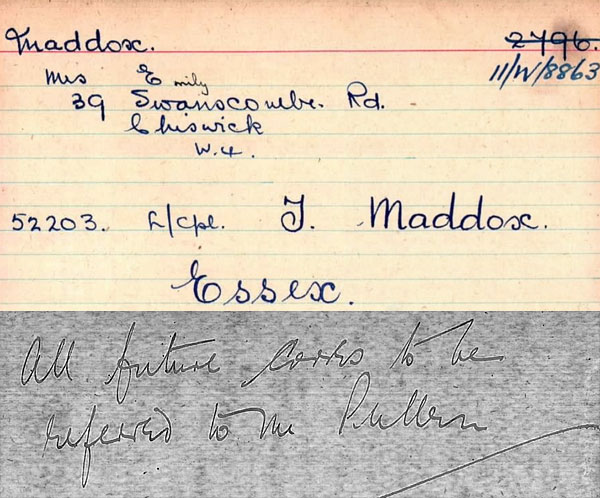 Maddox. 2796.
11/W/8863
Mrs Emily
39 Swanscombe. Rd.
Chiswick
W.4.
52203. L/Cpl. J. Maddox.
Essex.
All future corres to be
referred to Mr Pullern